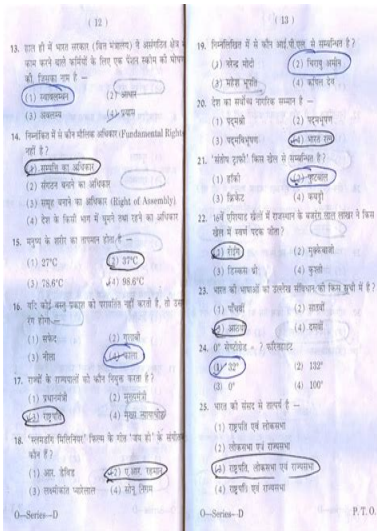 ( 12 )
13. हाल ही में भारत सरकार (वित्त मंत्रालय) ने असंगठित क्षेत्र
काम करने वाले कर्मियों के लिए एक पेंशन स्कीम की घोषण
की, जिसका नाम है –
(1) स्वावलम्बन (2) आधार
(3) अवलम्ब (4) प्रयास
14. निम्नांकित में से कौन मौलिक अधिकार (Fundamental Right
नहीं है ?
(1) सम्पत्ति का अधिकार
(2) संगठन बनाने का अधिकार
(3) समूह बनाने का अधिकार (Right of Assembly)
(4) देश के किसी भाग में घूमने तथा रहने का अधिकार
15. मनुष्य के शरीर का तापमान होता है –
(1) 27°C (2) 37°C
(3) 78.6°C (4) 98.6°C
16. यदि कोई वस्तु प्रकाश को परावर्तित नहीं करती है, तो उस
रंग होगा –
(1) सफेद (2) गुलाबी
(3) नीला (4) काला
17. राज्यों के राज्यपालों को कौन नियुक्त करता है ?
(1) प्रधानमंत्री (2) मुख्यमंत्री
(3) राष्ट्रपति (4) मुख्य न्यायाधीश
18. 'स्लमडॉग मिलिनियर' फिल्म के गीत 'जय हो' के संगीत
कौन हैं ?
(1) आर. डेविड (2) ए.आर. रहमान
(3) लक्ष्मीकांत प्यारेलाल (4) सोनू निगम
O—Series—D
( 13 )
19. निम्नलिखित में से कौन आई.पी.एल. से सम्बन्धित है ?
(1) नरेन्द्र मोदी (2) चिरायु अमीन
(3) महेश भूपति (4) कपिल देव
20. देश का सर्वोच्च नागरिक सम्मान है –
(1) पद्मश्री (2) पद्मभूषण
(3) पद्मविभूषण (4) भारत रत्न
21. 'संतोष ट्राफी' किस खेल से सम्बन्धित है ?
(1) हॉकी (2) फुटबाल
(3) क्रिकेट (4) कबड्डी
22. 16वें एशियाड खेलों में राजस्थान के बजरंग लाल ताखर ने किस
खेल में स्वर्ण पदक जीता ?
(1) रोइंग (2) मुक्केबाजी
(3) डिस्कस थ्रो (4) कुश्ती
23. भारत की भाषाओं का उल्लेख संविधान की किस सूची में है ?
(1) पाँचवीं (2) सातवीं
(3) आठवीं (4) दसवीं
24. 0° सेण्टीग्रेड = ? फारेनहाइट
(1) 32° (2) 132°
(3) 0° (4) 100°
25. भारत की संसद से तात्पर्य है –
(1) राष्ट्रपति एवं लोकसभा
(2) लोकसभा एवं राज्यसभा
(3) राष्ट्रपति, लोकसभा एवं राज्यसभा
(4) राष्ट्रपति एवं राज्यसभा
O—Series—D P. T. O.